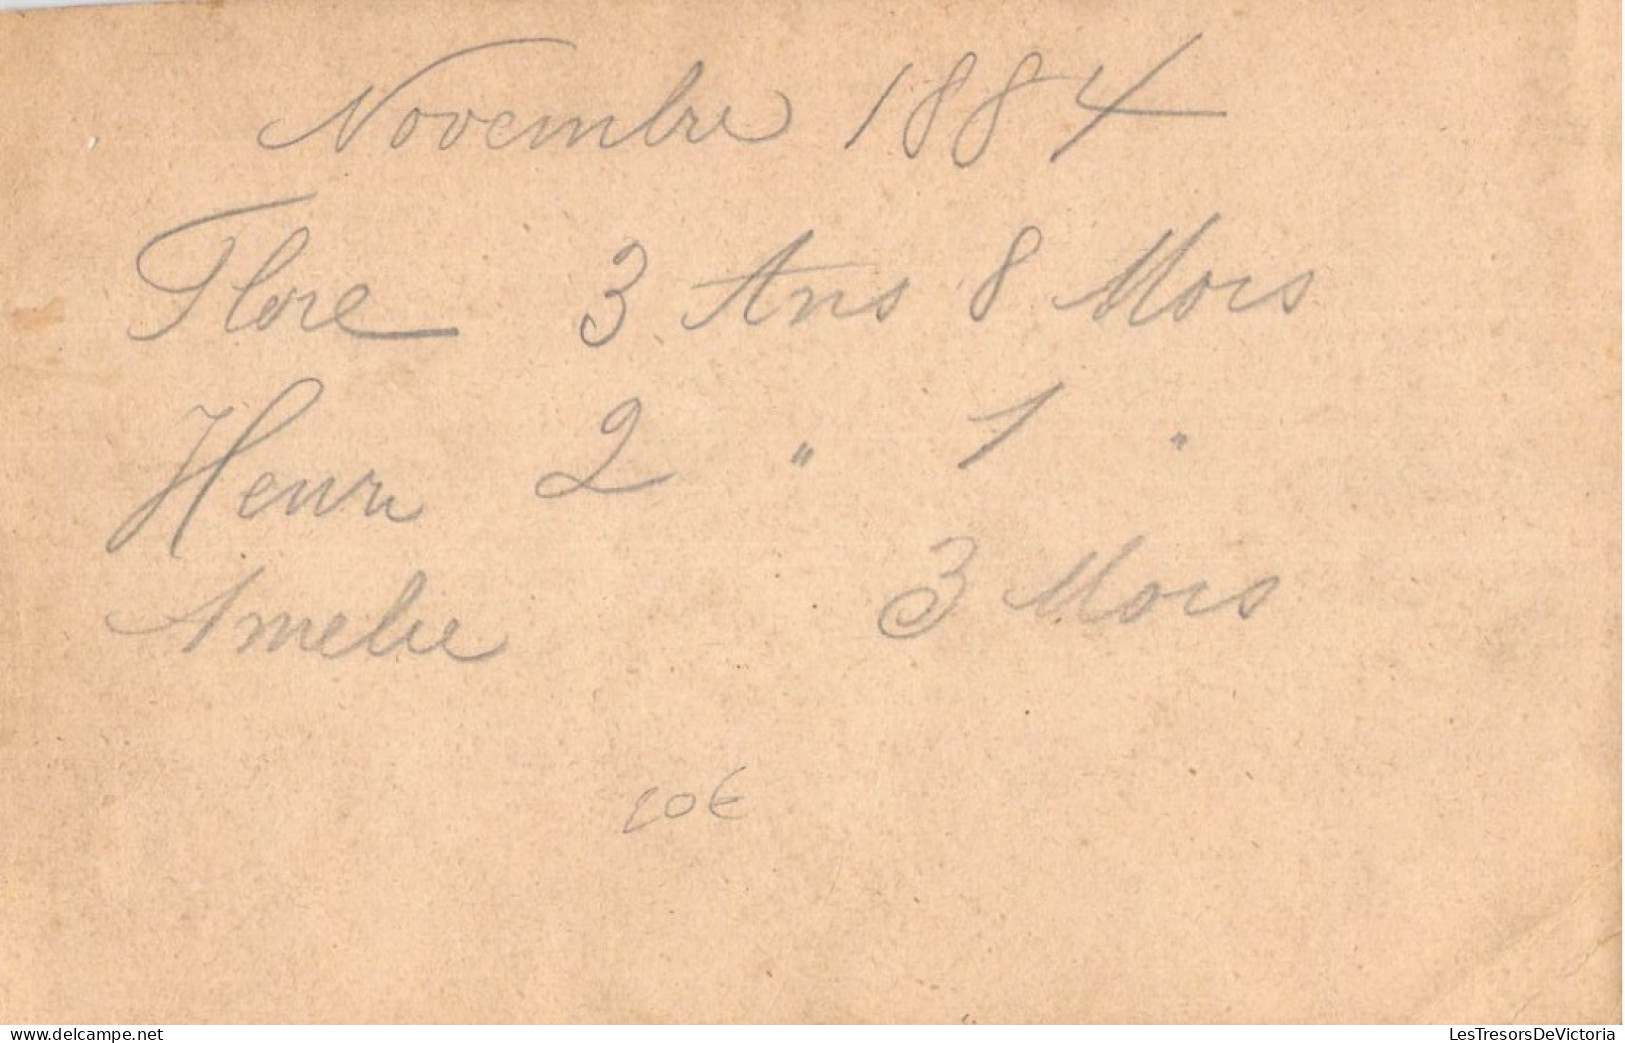 Novembre 1884
Flore 3 Ans 8 Mois
Henri 2 " 1 "
Amelie 3 Mois
20€
delcampe.net
LesTresorsDeVictoria